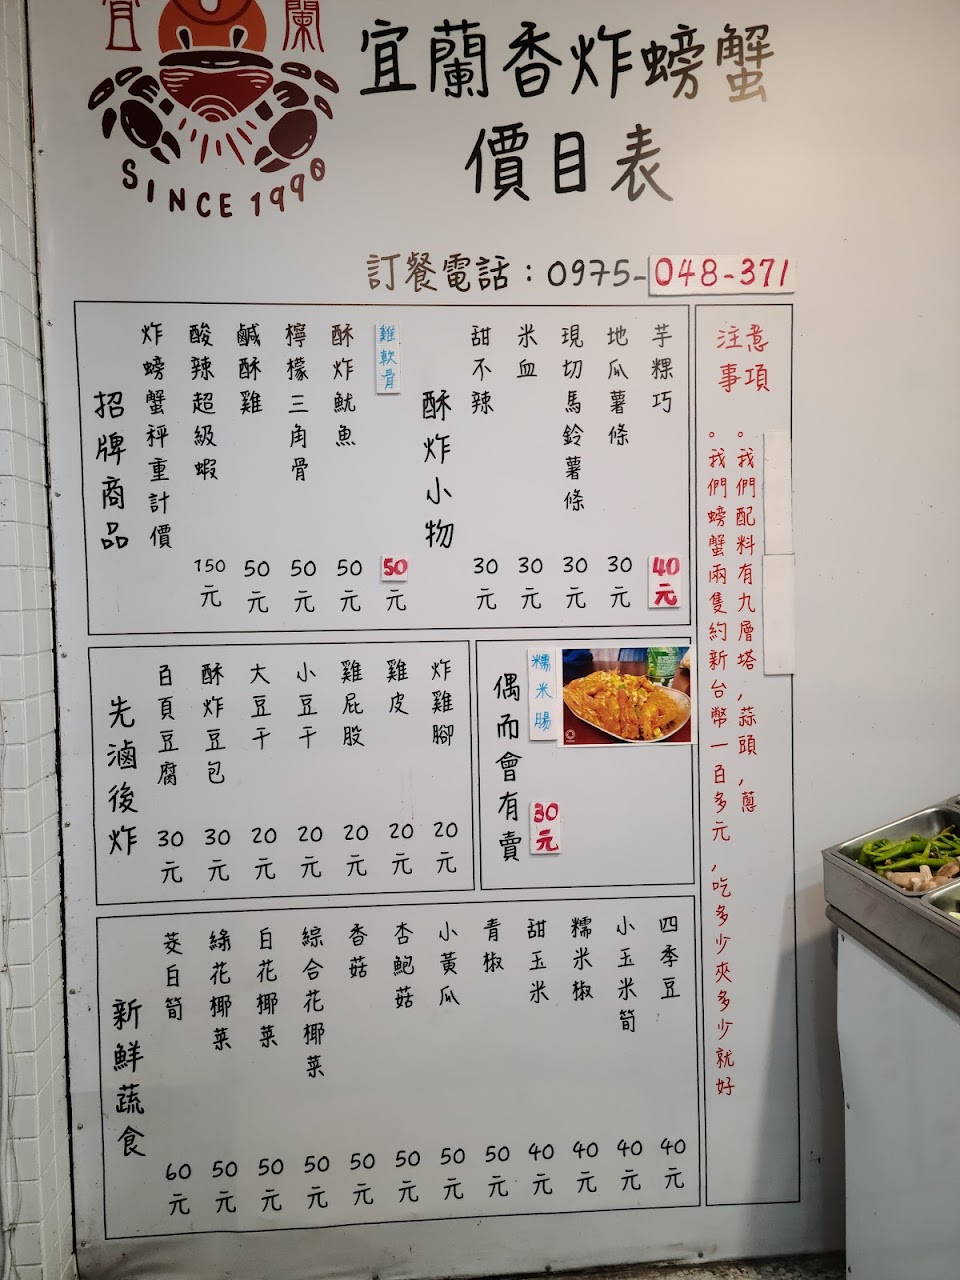 宜蘭
SINCE 1990
宜蘭香炸螃蟹
價目表
訂餐電話：0975-048-371
招牌商品
炸螃蟹秤重計價
酸辣超級蝦 150元
鹹酥雞 50元
檸檬三角骨 50元
酥炸魷魚 50元
雞軟骨 50元
酥炸小物
甜不辣 30元
米血 30元
現切馬鈴薯條 30元
地瓜薯條 30元
芋粿巧 40元
先滷後炸
百頁豆腐 30元
酥炸豆包 30元
大豆干 20元
小豆干 20元
雞屁股 20元
雞皮 20元
炸雞腳 20元
偶而會有賣
糯米腸 30元
新鮮蔬食
茭白筍 60元
綠花椰菜 50元
白花椰菜 50元
綜合花椰菜 50元
香菇 50元
杏鮑菇 50元
小黃瓜 50元
青椒 50元
甜玉米 40元
糯米椒 40元
小玉米筍 40元
四季豆 40元
注意事項
。我們配料有九層塔,蒜頭,蔥
。我們螃蟹兩隻約新台幣一百多元,吃多少夾多少就好